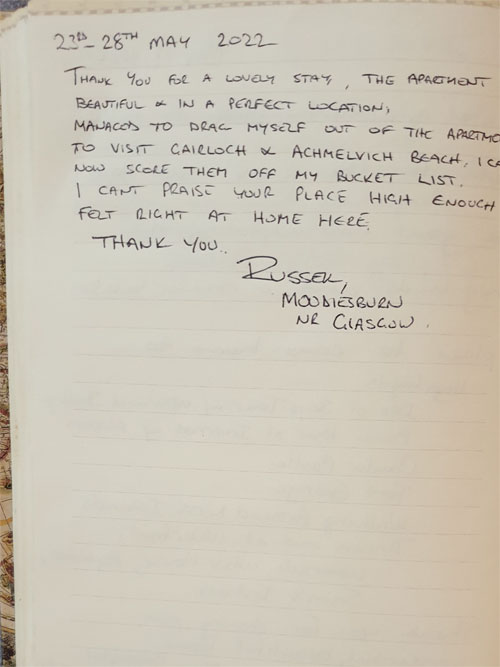 23RD - 28TH MAY 2022
THANK YOU FOR A LOVELY STAY, THE APARTMENT
BEAUTIFUL & IN A PERFECT LOCATION,
MANAGED TO DRAG MYSELF OUT OF THE APARTME
TO VISIT GAIRLOCH & ACHMELVICH BEACH, I CA
NOW SCORE THEM OFF MY BUCKET LIST.
I CANT PRAISE YOUR PLACE HIGH ENOUGH
FELT RIGHT AT HOME HERE.
THANK YOU..
RUSSELL,
MOODIESBURN
NR GLASGOW.